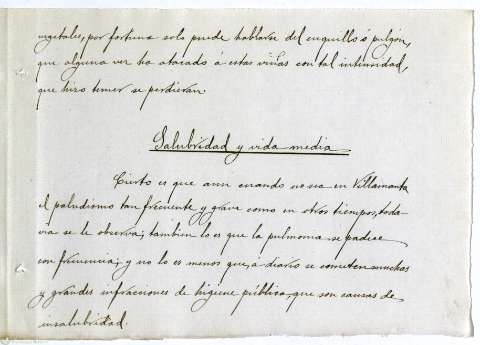 vegetales, por fortuna solo puede hablarse del cuquillo ó pulgón,
que alguna vez ha atacado á estas viñas con tal intensidad,
que hizo temer se perdieran.
Salubridad y vida media
Cierto es que aun cuando no sea en Villamanta
el paludismo tan frecuente y grave como en otros tiempos, toda-
via se le observa; tambien lo es que la pulmonia se padece
con frecuencia; y no lo es menos que, á diario se cometen muchas
y grandes infracciones de higiene pública, que son causas de
insalubridad.